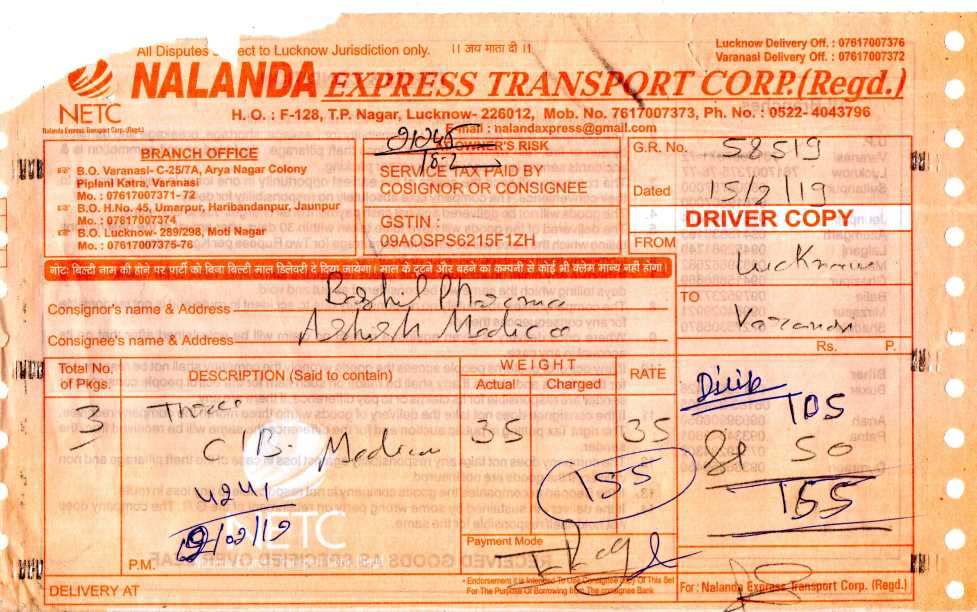 All Disputes ect to Lucknow Jurisdiction only. || जय माता दी ||
Lucknow Delivery Off. : 07617007376
Varanasi Delivery Off. : 07617007372
NALANDA EXPRESS TRANSPORT CORP.(Regd.)
NETC
Nalanda Express Transport Corp. (Regd.)
H. O. : F-128, T.P. Nagar, Lucknow- 226012, Mob. No. 7617007373, Ph. No. : 0522- 4043796
E-mail : nalandaxpress@gmail.com
BRANCH OFFICE
B.O. Varanasi- C-25/7A, Arya Nagar Colony
Piplani Katra, Varanasi
Mo. : 07617007371- 72
B.O. H.No. 45, Umarpur, Haribandanpur, Jaunpur
Mo. : 07617007374
B.O. Lucknow- 289/298, Moti Nagar
Mo. : 07617007375-76
OWNER'S RISK
SERVICE TAX PAID BY
COSIGNOR OR CONSIGNEE
GSTIN :
09AOSPS6215F1ZH
G.R. No. 58519
Dated 15/2/19
DRIVER COPY
FROM Lucknow
TO
Varanasi
नोट: बिल्टी नाम की होने पर पार्टी को बिना बिल्टी माल डिलेवरी दे दिया जायेगा। माल के टूटने और बहने का कम्पनी से कोई भी क्लेम मान्य नही होगा।
Consignor's name & Address Pharma
Consignee's name & Address Ashish Medica
Rs. P.
Total No. of Pkgs.
DESCRIPTION (Said to contain)
WEIGHT
Actual Charged
RATE
3 Three 35 35
C/B- Medicin
4241
155
105
50
155
NETC
Payment Mode
P.M.
DELIVERY AT
* Endorsement It is Intended To Use Consignee Copy Of This Set
For The Purpose Of Borrowing from The consignee Bank
For : Nalanda Express Transport Corp. (Regd.)